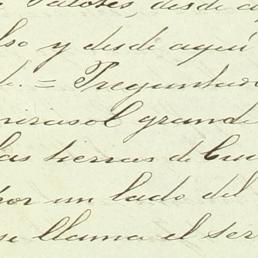 Valores, desde a
lso y desde aqui
de. = Preguntado
mirasol grande
las tierras de Cu
por un lado del
se llama el ser